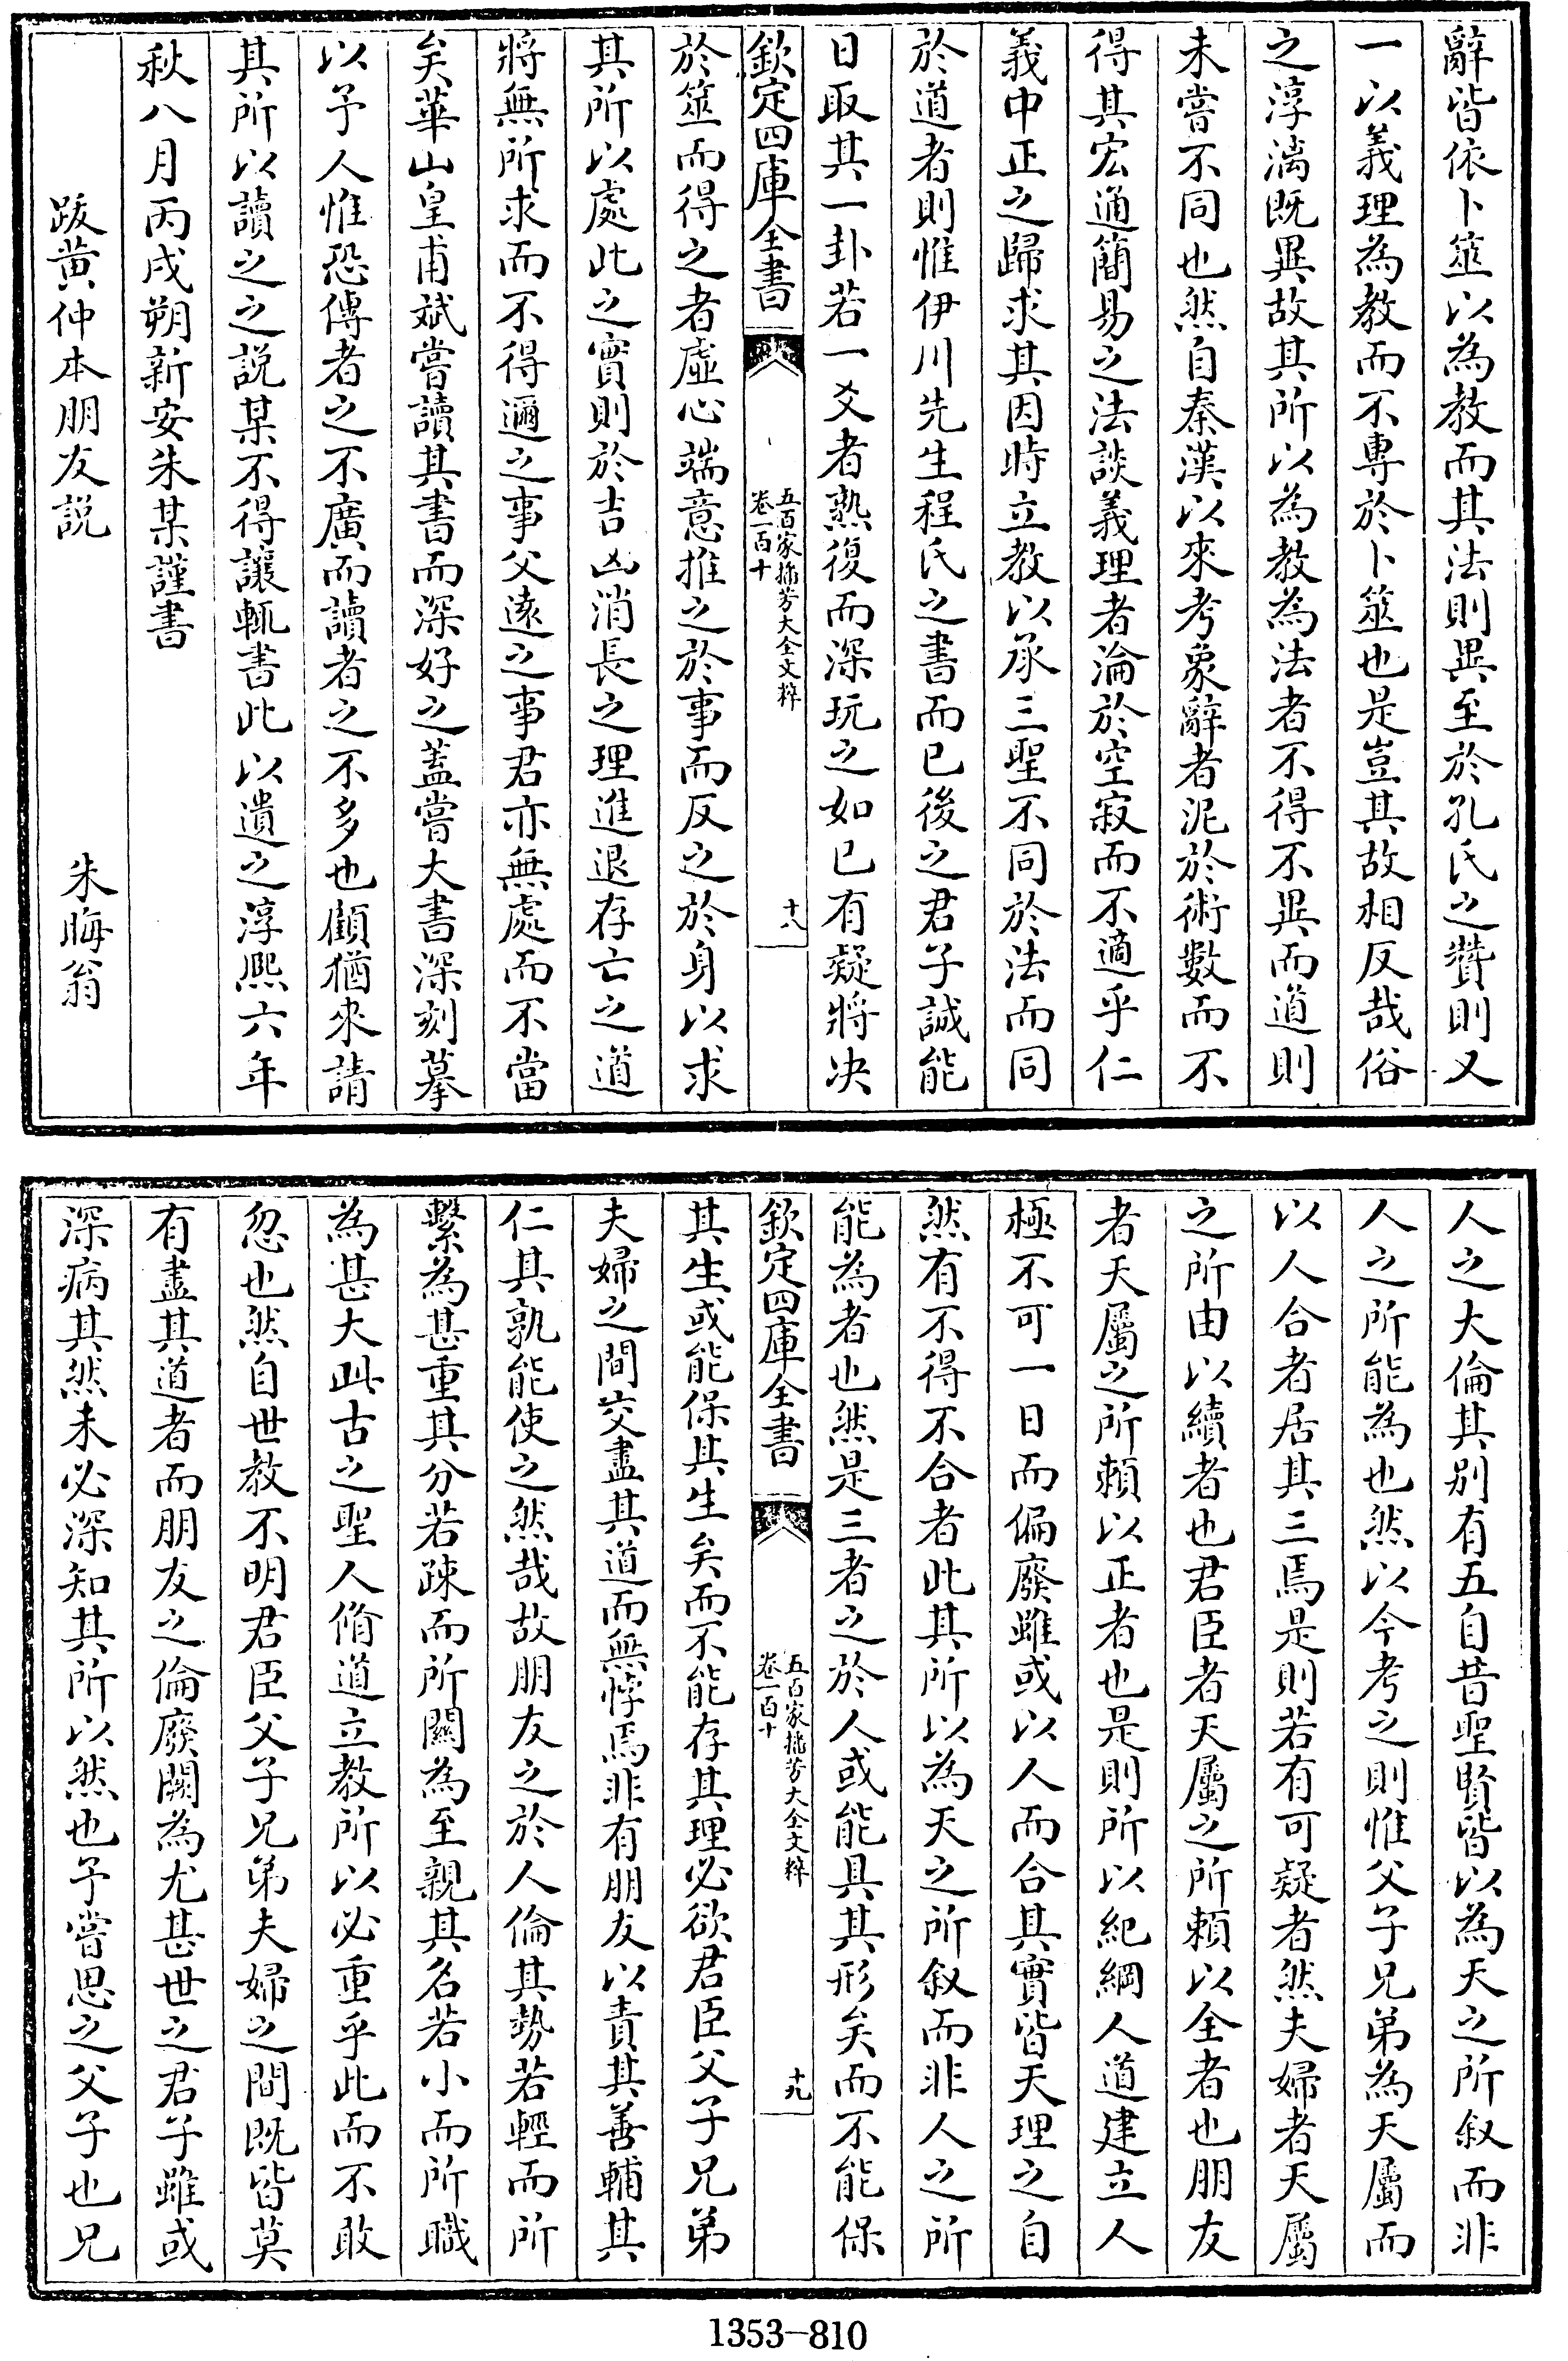 辭皆依卜筮以為教而其法則異至於孔氏之贊則又
一以義理為教而不專於卜筮也是豈其故相反哉俗
之淳漓既異故其所以為教為法者不得不異而道則
未嘗不同也然自秦漢以來考象辭者泥於術數而不
得其宏通簡易之法談義理者淪於空寂而不適乎仁
義中正之歸求其因時立教以承三聖不同於法而同
於道者則惟伊川先生程氏之書而已後之君子誠能
日取其一卦若一爻者熟復而深玩之如已有疑將决
欽定四庫全書
五百家播芳大全文粹
卷一百十
十八
於筮而得之者虛心端意推之於事而反之於身以求
其所以處此之實則於吉凶消長之理進退存亡之道
將無所求而不得邇之事父遠之事君亦無處而不當
矣華山皇甫斌嘗讀其書而深好之蓋嘗大書深刻摹
以予人惟恐傳者之不廣而讀者之不多也顧猶來請
其所以讀之之説某不得讓輒書此以遺之淳熙六年
秋八月丙戌朔新安朱某謹書
跋黄仲本朋友説
朱晦翁
人之大倫其别有五自昔聖賢皆以為天之所叙而非
人之所能為也然以今考之則惟父子兄弟為天屬而
以人合者居其三焉是則若有可疑者然夫婦者天屬
之所由以續者也君臣者天屬之所頼以全者也朋友
者天屬之所頼以正者也是則所以紀綱人道建立人
極不可一日而偏廢雖或以人而合其實皆天理之自
然有不得不合者此其所以為天之所叙而非人之所
能為者也然是三者之於人或能具其形矣而不能保
欽定四庫全書
五百家播芳大全文粹
卷一百十
十九
其生或能保其生矣而不能存其理必欲君臣父子兄弟
夫婦之間交盡其道而無悖焉非有朋友以責其善輔其
仁其孰能使之然哉故朋友之於人倫其勢若輕而所
繫為甚重其分若疎而所關為至親其名若小而所職
為甚大此古之聖人脩道立教所以必重乎此而不敢
忽也然自世教不明君臣父子兄弟夫婦之間既皆莫
有盡其道者而朋友之倫廢闕為尤甚世之君子雖或
深病其然未必深知其所以然也予嘗思之父子也兄
1353-810